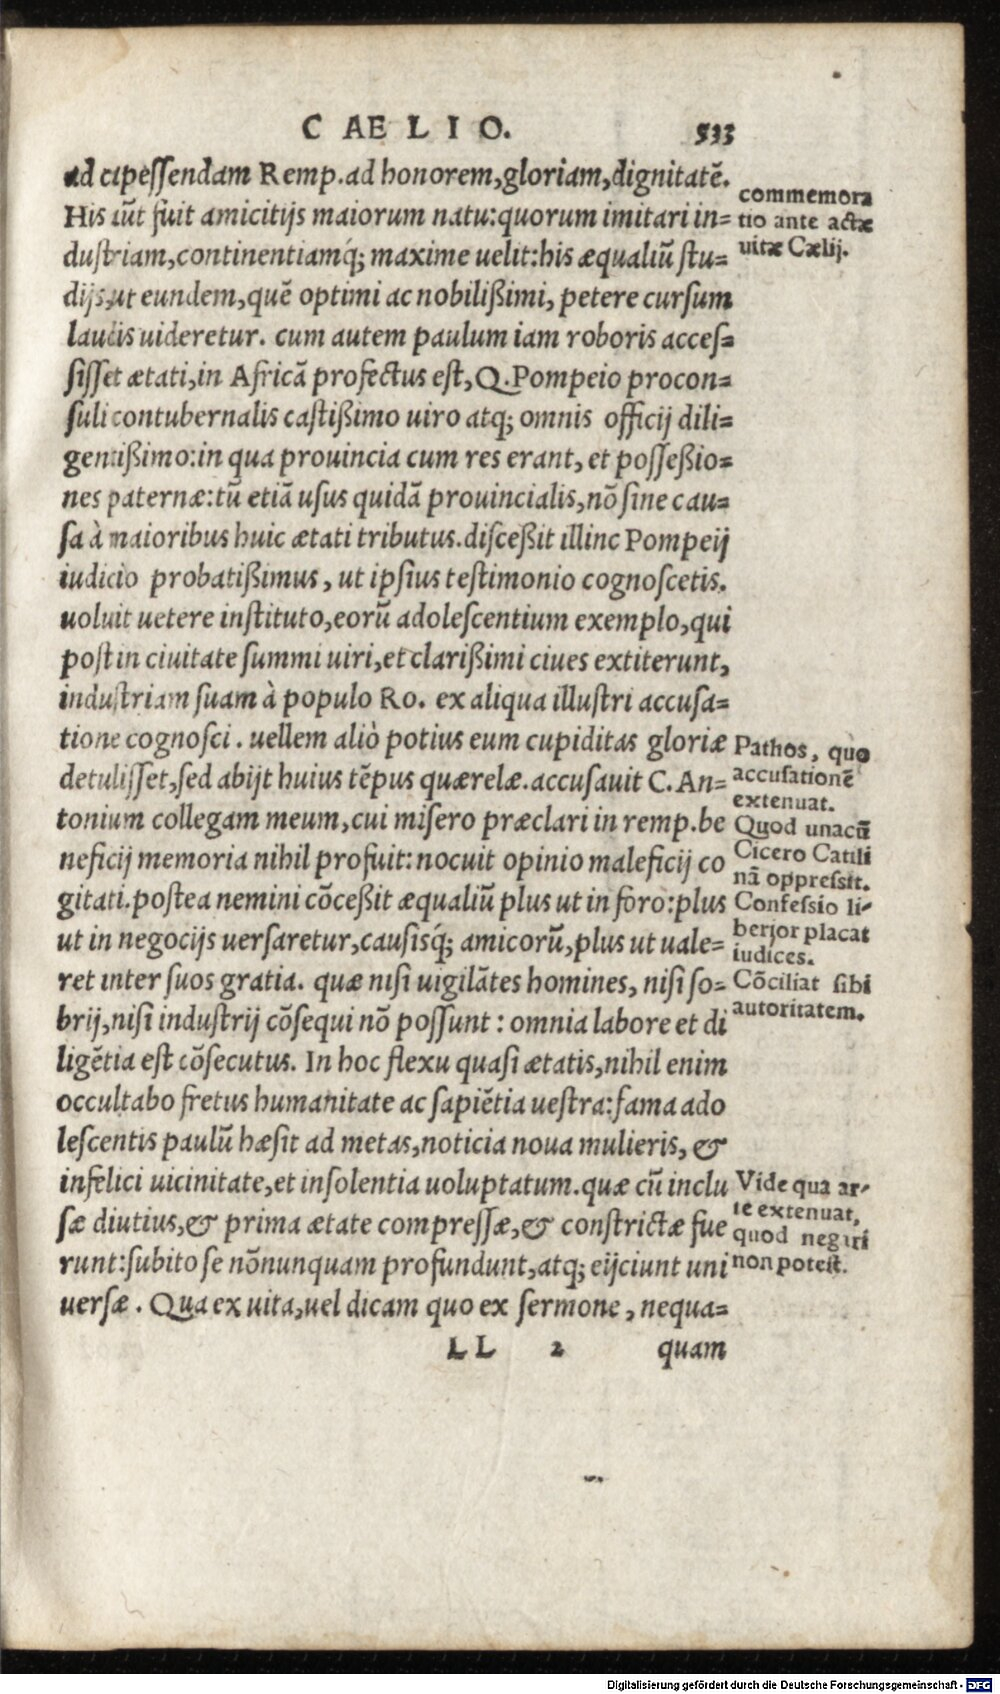 C AE L I O.
533
ad capessendam Remp.ad honorem,gloriam,dignitatē.
His aūt fuit amicitijs maiorum natu:quorum imitari in=
dustriam,continentiamq́; maxime uelit:his æqualiū stu=
dijs,ut eundem,quē optimi ac nobilißimi, petere cursum
laudis uideretur. cum autem paulum iam roboris acces=
sisset ætati,in Africā profectus est, Q.Pompeio procon=
suli contubernalis castißimo uiro atq; omnis officij dili=
gentißimo:in qua prouincia cum res erant, et possessßio=
nes paternæ:tū etiā usus quidā prouincialis,nō sine cau=
sa à maioribus huic ætati tributus.discessßit illinc Pompeij
iudicio probatißimus, ut ipsius testimonio cognoscetis.
uoluit uetere instituto,eorū adolescentium exemplo,qui
post in ciuitate summi uiri,et clarißimi ciues extiterunt,
industriam suam à populo Ro. ex aliqua illustri accusa=
tione cognosci. uellem aliò potius eum cupiditas gloriæ
detulisset,sed abijt huius tēpus quærelæ.accusauit C. An=
tonium collegam meum,cui misero præclari in remp.be
neficij memoria nihil profuit: nocuit opinio maleficij co
gitati.postea nemini cōceßit æqualiū plus ut in foro:plus
ut in negocijs uersaretur,causisq́; amicorū,plus ut uale=
ret inter suos gratia. quæ nisi uigilātes homines, nisi so=
brij,nisi industrij cōsequi nō possunt: omnia labore et di
ligētia est cōsecutus. In hoc flexu quasi ætatis,nihil enim
occultabo fretus humanitate ac sapiētia uestra:fama ado
lescentis paulū hæsit ad metas,noticia noua mulieris, &
infelici uicinitate,et insolentia uoluptatum.quæ cū inclu
sæ diutius,& prima ætate compressæ,& constrictæ fue
runt:subito se nōnunquam profundunt,atq; eijciunt uni
uersæ. Qua ex uita,uel dicam quo ex sermone, nequa=
LL 2 quam
commemora
tio ante actæ
uitæ Cælij.
Pathos, quo
accusationē
extenuat.
Quod unacū
Cicero Catili
nā oppressit.
Confessio li-
berior placat
iudices.
Cōciliat sibi
autoritatem.
Vide qua ar-
te extenuat,
quod negari
non potest.
Digitalisierung gefördert durch die Deutsche Forschungsgemeinschaft - DFG